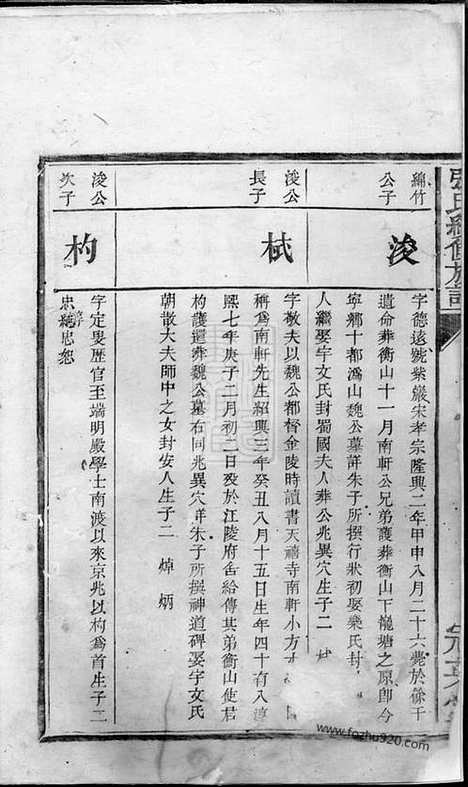 張氏續修族譜
綿竹
公子
浚
字德遠號紫巖宋孝宗隆興二年甲申八月二十六薨於餘干
遺命葬衡山十一月南軒公兄弟護葬衡山下龍塘之原卽今
寧鄉十都溈山魏公墓詳朱子所撰行狀初娶樂氏封
人繼娶宇文氏封蜀國夫人葬公兆異穴生子二 栻
浚公
長子
栻
字敬夫以魏公都督金陵時讀書天禧寺南軒小方
稱爲南軒先生紹興三年癸丑八月十五日生年四十有八淳
熙七年庚子二月初二日歿於江陵府舍給傳其弟衡山使君
杓護還葬魏公墓右同兆異穴詳朱子所撰神道碑娶宇文氏
朝散大夫師中之女封安人生子二 焯 炳
浚公
次子
杓
字定叟歷官至端明殿學士南渡以來京兆以杓爲首生子二
忠純忠恕
www.fozhu920.com